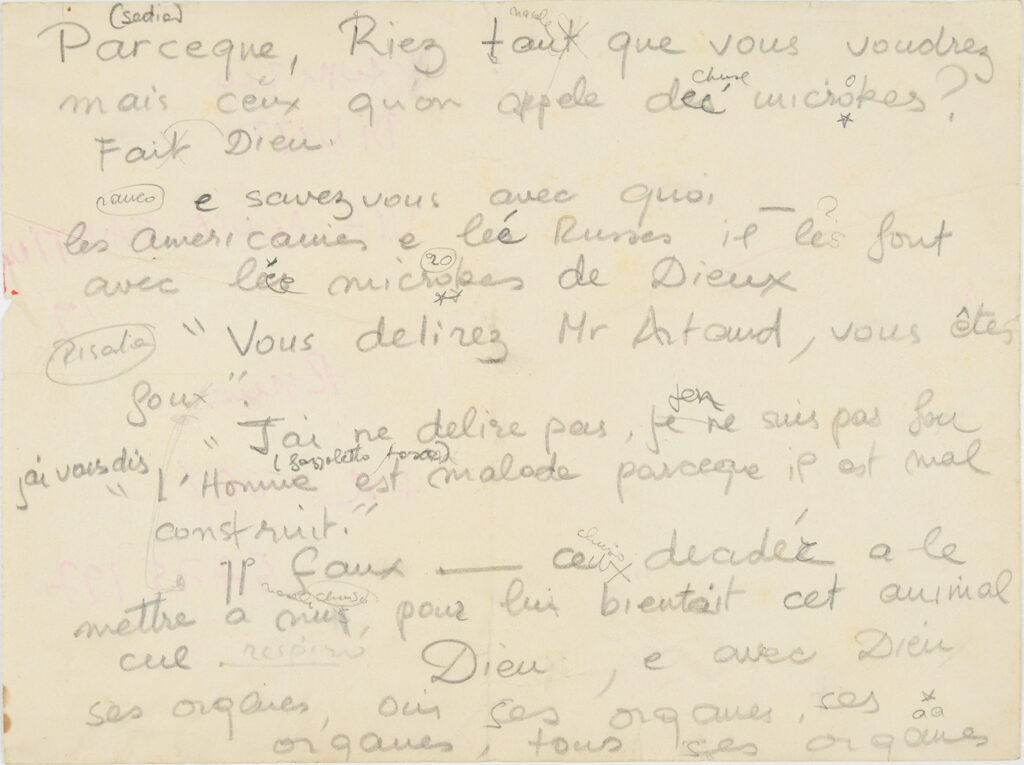 (sedia)
Parceque, Riez tant que vous voudrez
chuse
mais ceux qu'on appele deé microbes?
Fait Dieu.
rauco e savez vous avec quoi — ?
les americaines e leé Russes il les font
20
avec lés microbes de Dieux
Risata "Vous delirez Mr Artaud, vous êtes
foux".
"J'ai ne delire pas, je ne suis pas fou
j'ai vous dis (fazzoletto tosse)
"L'Homme est malade parceque il est mal
construit."
il faux — ceux decadéé a le
mettre a nus, pour lui bientoit cet animal
cul respiro Dieu, e avec Dieu
ses organes, oui ses organes, ses
aa
organes, tous ses organes